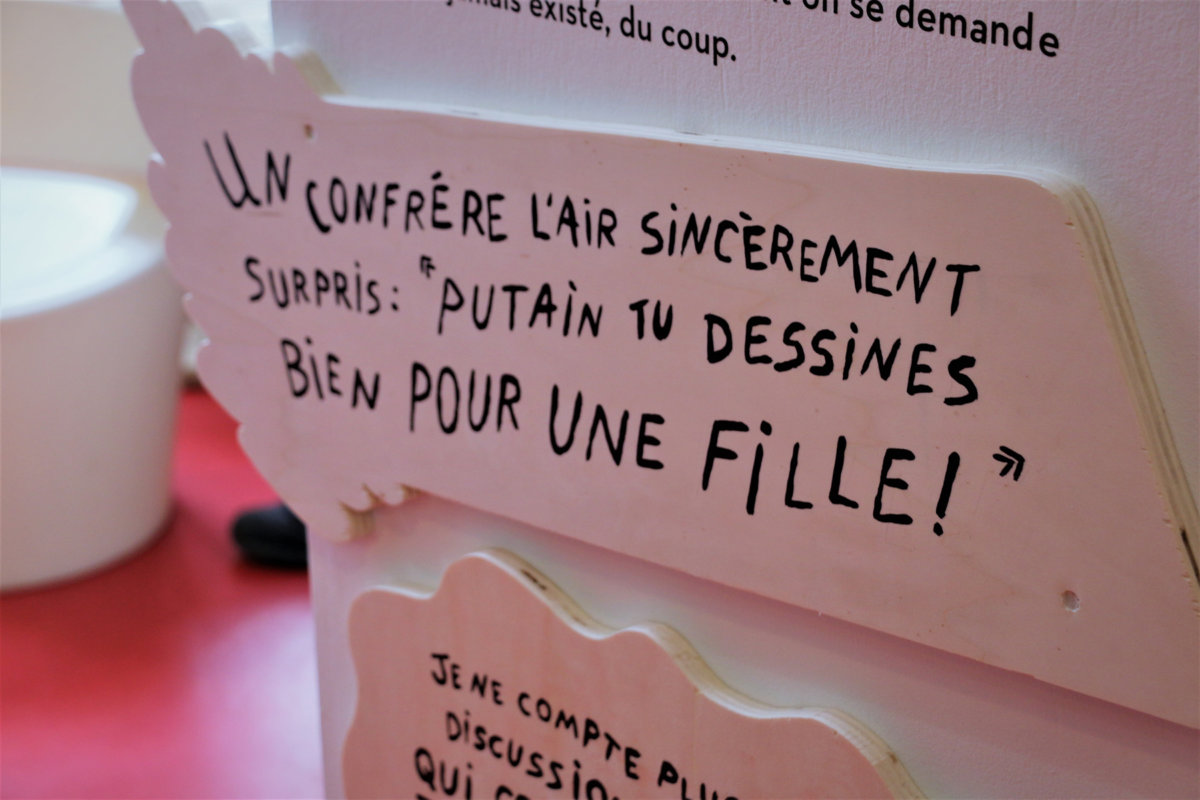 on se demande
jamais existé, du coup.
UN CONFRÉRE L'AiR SiNCÈREMENT
SURPRiS: "PUTAiN TU DESSiNES
BiEN POUR UNE FiLLE! »
JE NE COMPTE PLUS
DiSCUSSiO
QUi